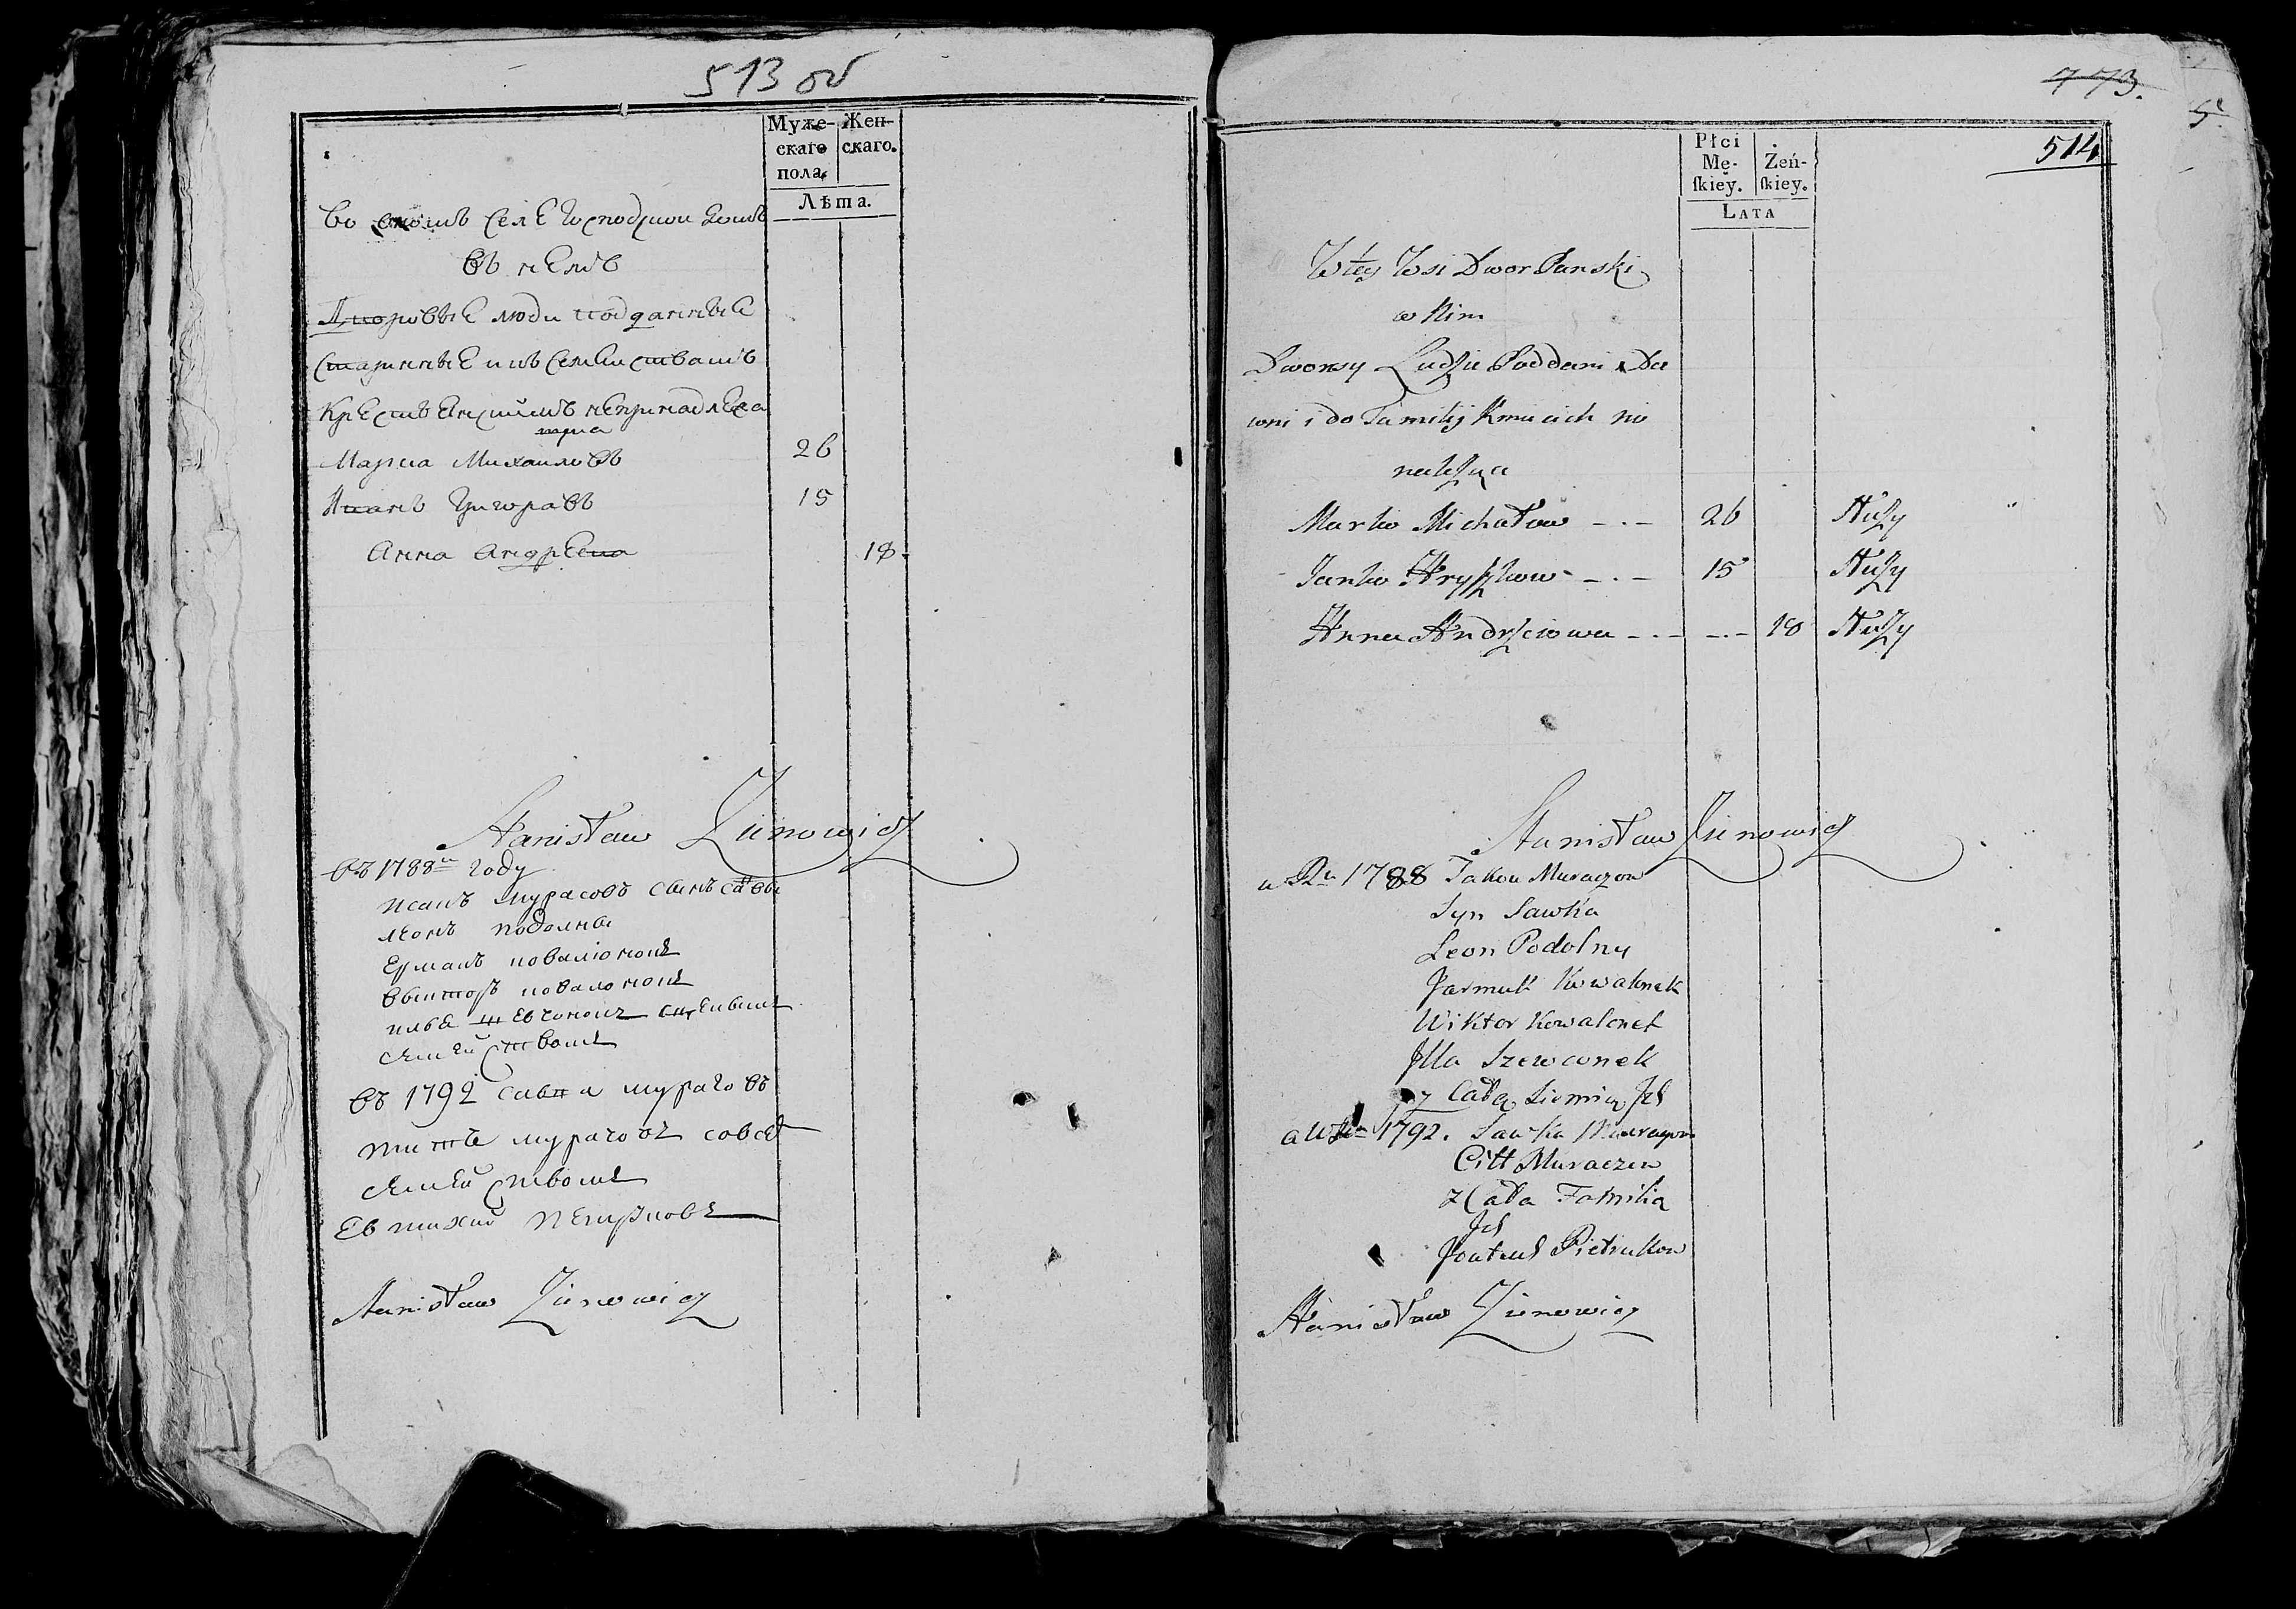 513 об
Муже- Жен-
скаго скаго.
пола.
Лѣта.
Во ономъ селе Господскои домъ
въ немъ
Дворовые люди подданные
старинные и къ семеиствамъ
крестьянскимъ непринадлежа
щиа
Марко Михаиловъ 26
Иванъ Григоравъ 15
Анна Андреева 18
Stanisław Zienowicz
въ 1788м году
мурасовъ сынъ
леонъ подолны
Ермакъ ковалионокъ
викторъ ковалонокъ
илья шевчонокъ
семействомъ
въ 1792 савка мурачовъ
титъ мурачовъ
семействомъ
Евтихий петруковъ
Stanisław Zienowicz
773.
514
Płci
Mę- Żeń-
ſkiey. ſkiey.
LATA
W tey Wsi Dwor Panski
w Nim
Dworscy Ludzie Poddani Da
wni i do Familij Kmiecich nie
należąca
Marko Michałow - . - 26 Służy
Janko Hryszkow - . - 15 Służy
Anna Andrzeiowa - . - - . - 18 Służy
Stanisław Zienowicz
1788 Jakow Muraczow
Syn Sawka
Leon Podolny
Jarmak Kowalonek
Wiktor Kowalonek
Jlla Szewconek
z Całą
a w Ru 1792. Sawka Muraczow
Citt Muraczew
z Całą Familią
Jch
Jeutuch Pietrukow
Stanisław Zienowicz